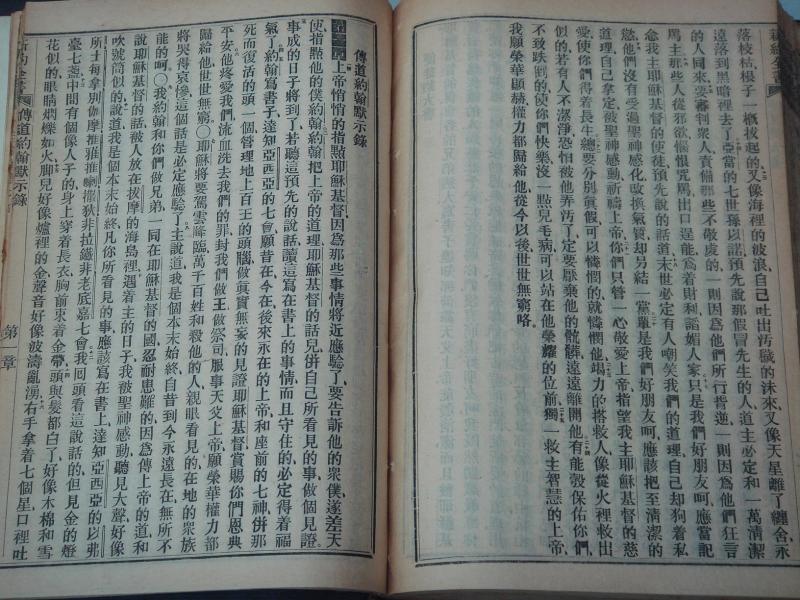 新約全書
落枝枯根子一概拔起的又像海裡的波浪自己吐出污臟的沫來又像天星離了纏舍永
遠落到黑暗裡去了亞當的七世孫以諾預先說那假冒先生的人道主必定和一萬清潔
的人同來要審判衆人責備那些不敬虔的一則因爲他們所行背逆一則因爲他們狂言
罵主那些人從邪欲惱恨咒罵出口逞能爲着財利諂媚人家只是我們好朋友呵應當記
念我主耶穌基督的使徒預先說的話道末世必定有人嘲笑我們的道理自己却狥着私
慾他們沒有受過聖神感化改換氣質却另結一黨單是我們好朋友呵應該把至清潔的
道理自己拿定被聖神感動祈禱上帝你們只管一心敬愛上帝指望我主耶穌基督的慈
愛使你們得着長生總要分別眞假可以憐憫的就憐憫他竭力的搭救人像從火裡救出
似的若有人不潔淨恐怕被他弄汚了定要厭棄他的骯髒遠遠離開他有能彀保佑你們
不致跌到的使你們快樂沒一點兒毛病可以站在他榮耀的位前獨一救主智慧的上帝
我願榮華顯赫權力都歸給他從今以後世世無窮咯
傳道約翰默示錄
第一章上帝悄悄的指點耶穌基督因爲那些事情將近應驗了要告訴他的衆僕遂差天
使指點他的僕約翰約翰把上帝的道理耶穌基督的話兒併自己所看見的事做個見證
事成的日子將到了若聽這預先的說話讀這寫在書上的事情而且守住的必定得着福
氣了約翰寫書子達知亞西亞的七會願昔在今在後來永在的上帝和座前的七神併那
死而復活的頭一個管理地上百王的頭腦做眞實無妄的見證耶穌基督賞賜你們恩典
平安他疼愛我們流血洗去我們的罪封我們做王做祭司服事天父上帝願榮華權力都
歸給他世世無窮〇耶穌將要駕雲降臨萬千百姓和殺他的人親眼看見的在地的衆族
將哭得哀慘這個話是必定應驗了主說道我是個本末始終自昔到今永遠長在無所不
能的呵〇我約翰和你們做兄弟一同在耶穌基督的國忍耐患難的因爲傳上帝的道和
說耶穌基督的話被人放在拔摩的海島裡遇着主的日子我被聖神感動聽見大聲好像
吹號筒似的說道我是個本末始終凡你所看見的事應該寫在書上達知亞西亞的以弗
所士每拿別伽摩推雅推喇撒狄非拉鐵非老底嘉七會我囘頭看這說話的但見金的燈
臺七盞中間有個像人子的身上穿着長衣胸前束着金帶頭與髮都白了好像木棉和雪
花似的眼睛烱爍如火脚兒好像爐裡的金聲音好像波濤亂湧右手拿着七個星口裡吐
新約全書 傳道約翰默示錄 第一章